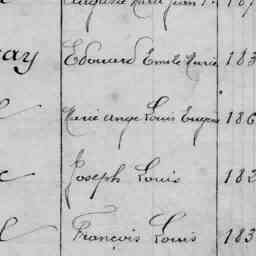 Edouard Emile Marie 183
Marie Ange Louis Eugène 186
Joseph Louis 182
François Louis 183